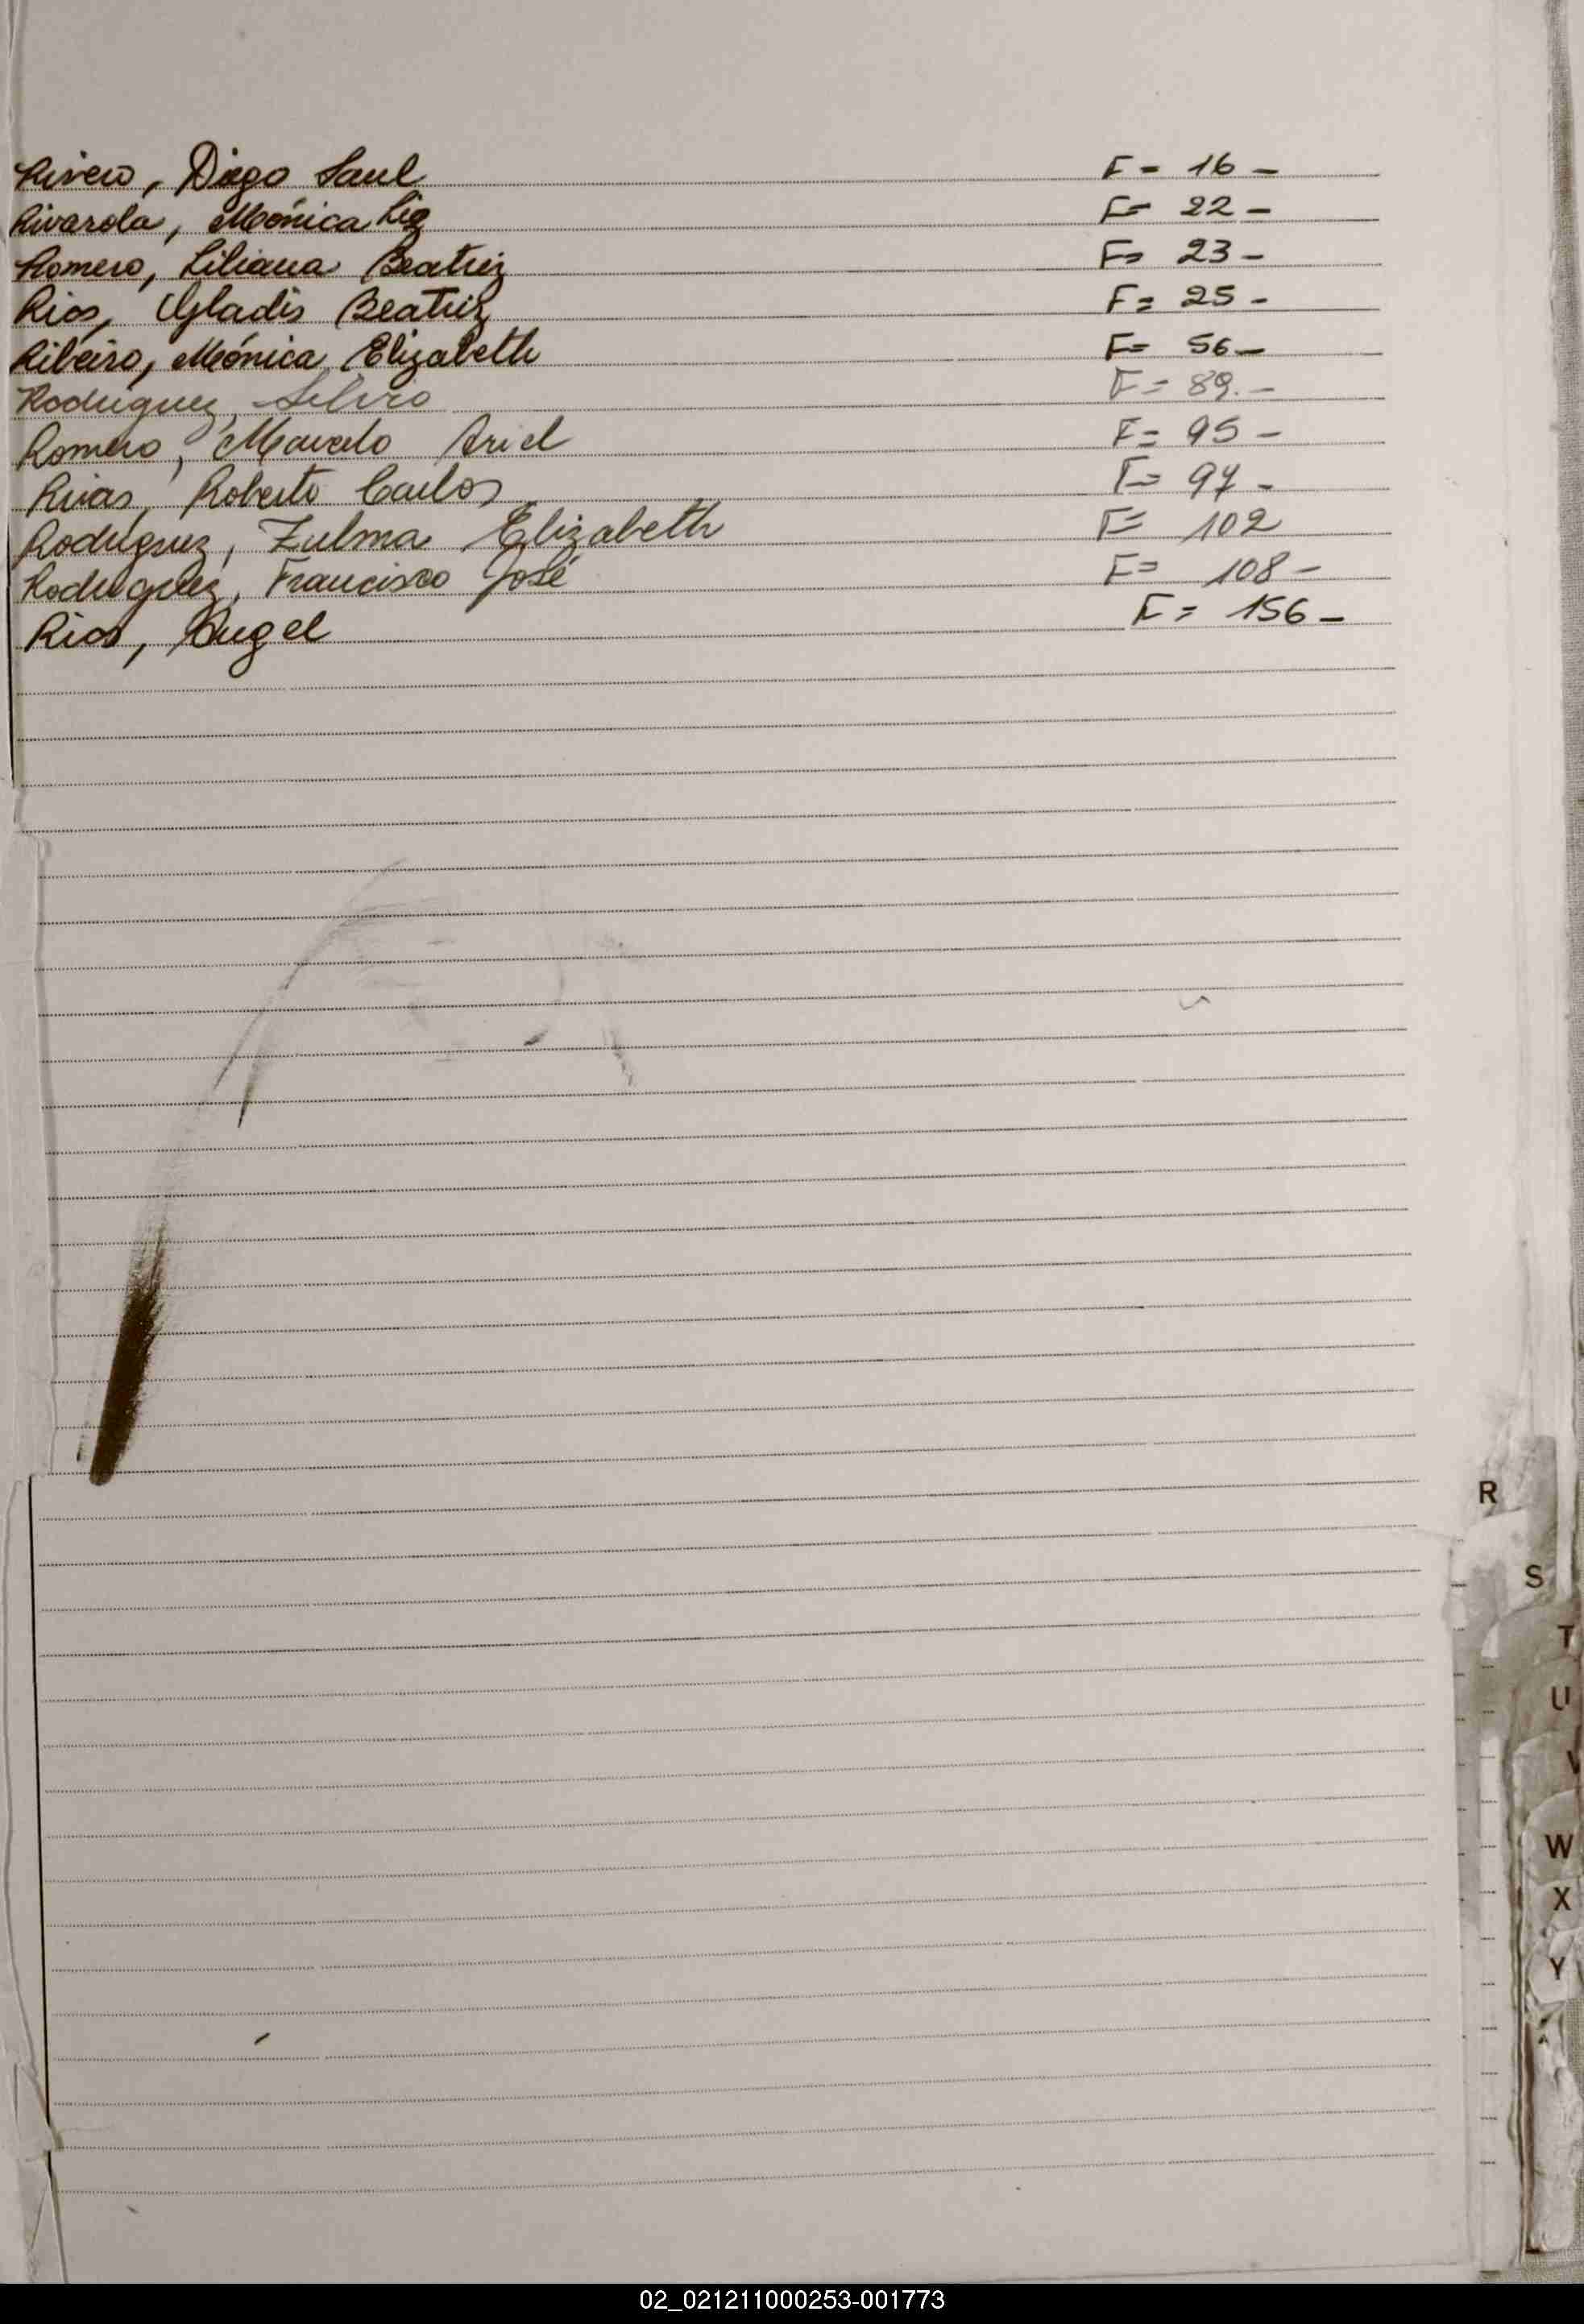 Rivero, Diego Saul F = 16 -
Rivarola, Mónica Liz F= 22 -
Romero, Liliana Beatriz F= 23 -
Rios, Gladis Beatriz F= 25 -
Ribeiro, Mónica Elizabeth F= 56 -
Rodriguez, Silvio F = 89. -
Romero, Marcelo Ariel F= 95 -
Rivas, Roberto Carlos F= 97 -
Rodriguez, Zulma Elizabeth F= 102
Rodriguez, Francisco José F= 108 -
Rios, Angel F = 156 -
R
S
T
U
V
W
X
Y
02_021211000253-001773